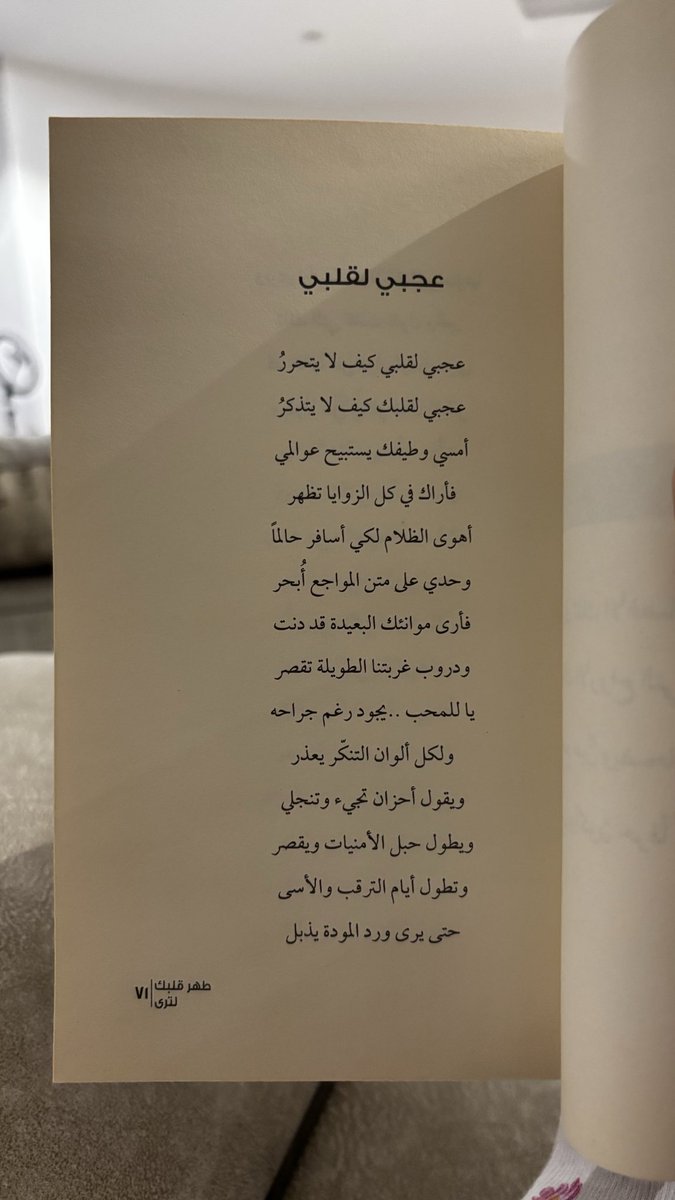 عجبي لقلبي
عجبي لقلبي كيف لا يتحررُ
عجبي لقلبك كيف لا يتذكرُ
أمسي وطيفك يستبيح عوالمي
فأراك في كل الزوايا تظهر
أهوى الظلام لكي أسافر حالماً
وحدي على متن المواجع أُبحر
فأرى موانئك البعيدة قد دنت
ودروب غربتنا الطويلة تقصر
يا للمحب ..يجود رغم جراحه
ولكل ألوان التنكّر يعذر
ويقول أحزان تجيء وتنجلي
ويطول حبل الأمنيات ويقصر
وتطول أيام الترقب والأسى
حتى يرى ورد المودة يذبل
طهر قلبك
لترى
٧١